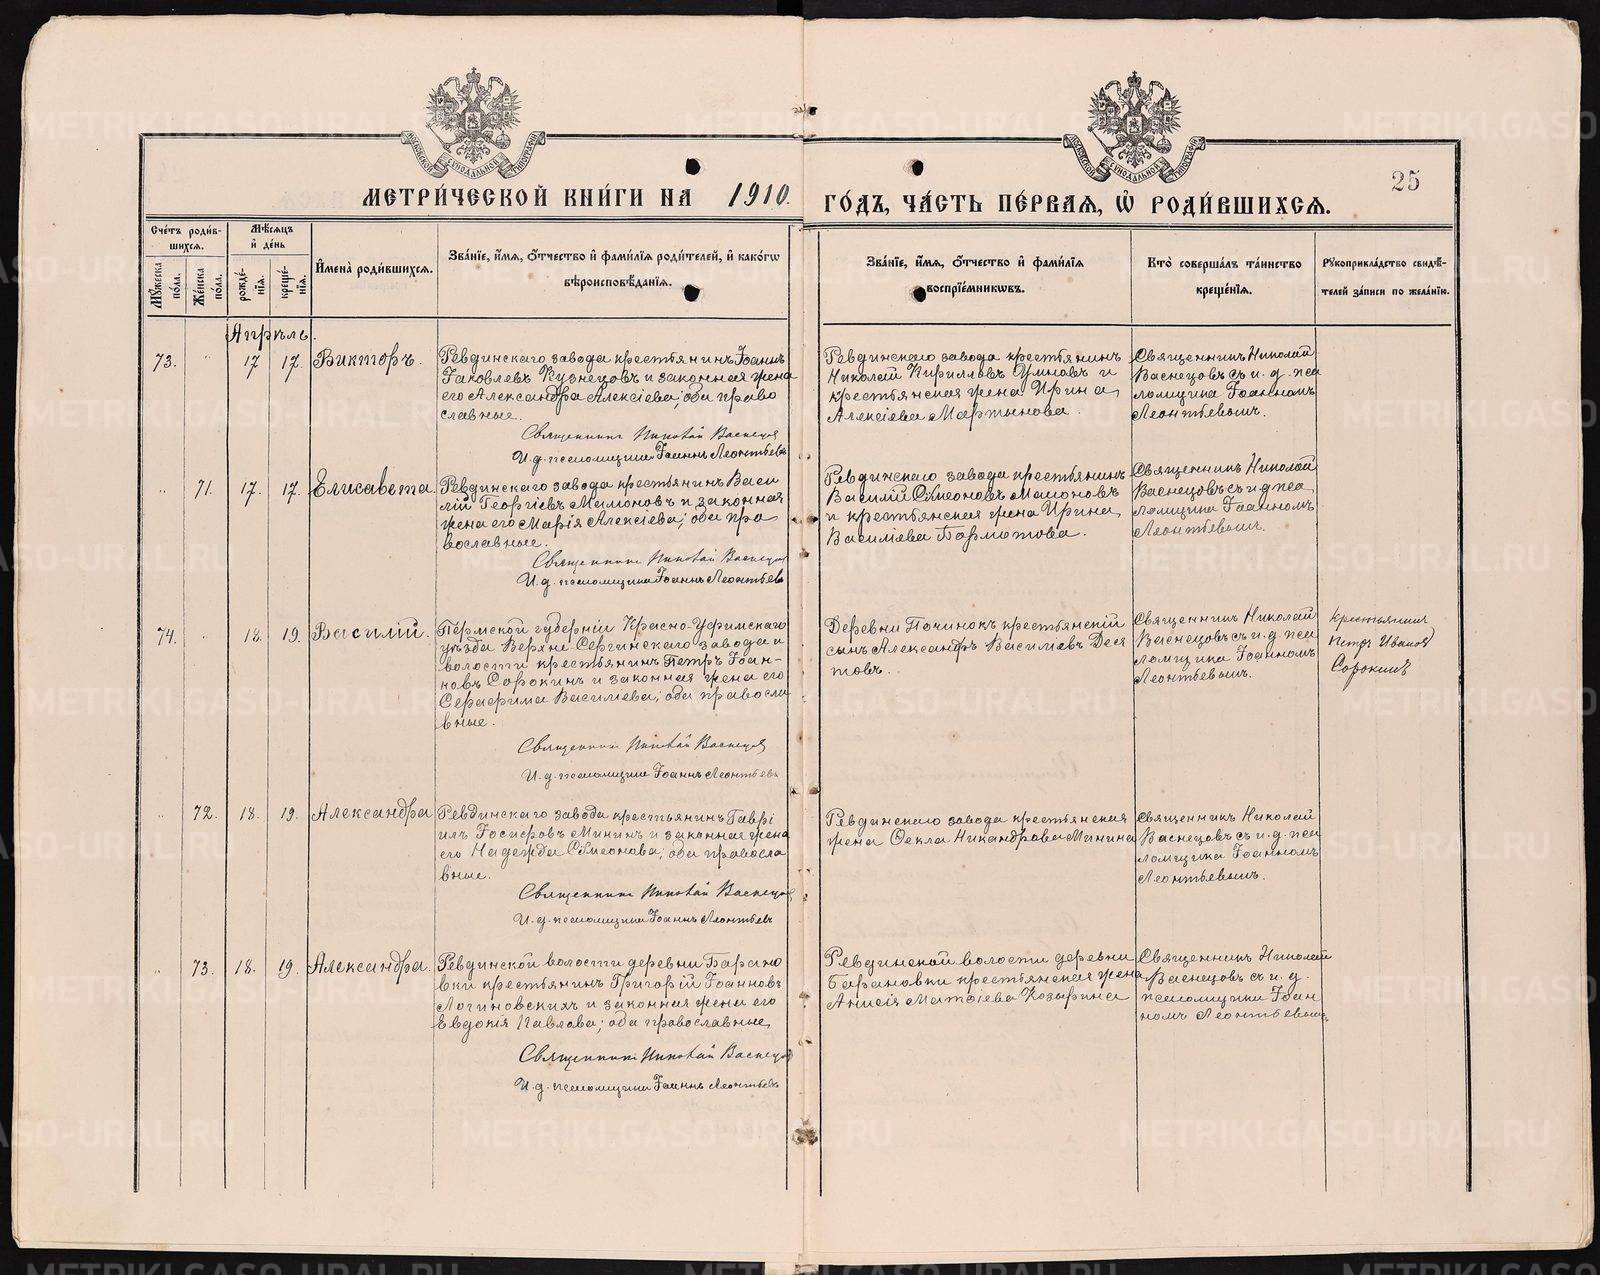 МЕТРИ́ЧЕСКОЙ КНИ́ГИ НА 1910.
ГО́ДЪ, ЧА́СТЬ ПЕ́РВАЯ, Ѡ҆ РОДИ́ВШИХСЯ.
25
Сче́тъ роди́в-
шихся.
Мѣ́сяцъ
и҆ де́нь
Мꙋ́жеска
по́ла.
Же́нска
по́ла.
рожде́-
нїя.
креще́-
нїя.
И҆мена̀ роди́вшихся.
Зва́нїе, и҆́мя, ѻ҆́тчество и҆ фамѝлїя роди́телей, и҆ како́гѡ
вѣроисповѣ́данїя.
Зва́нїе, и҆́мя, ѻ҆́тчество и҆ фами́лїя
воспрїе́мникѡвъ.
Кто̀ соверша́лъ та́инство
креще́нїя.
Рꙋкоприкла́дство свидѣ́-
телей за́писи по жела́нїю.
Апрѣль.
73. 17 17. Викторъ.
Ревдинскаго завода крестьянинъ Іоаннъ
Іаковлевъ Кузнецовъ и законная жена
его Александра Алексіева; оба право
славные.
Священникъ Николай Васнецов
И.д. псаломщика Іоаннъ Леонтьевъ
Ревдинскаго завода крестьянинъ
Николай Кирилловъ Умновъ и
крестьянская жена Ирина
Алексіева Мартынова.
Священникъ Николай
Васнецовъ съ и. д. пса
ломщика Іоанномъ
Леонтьевымъ.
71. 17. 17. Елисавета
Ревдинскаго завода крестьянинъ Васи
лій Георгіевъ Мамоновъ и законная
жена его Марія Алексіева; оба пра
вославные.
Священникъ Николай Васнецов
И.д. псаломщика Іоаннъ Леонтьевъ
Ревдинскаго завода крестьянинъ
Василій Сѵмеоновъ Мамоновъ
и крестьянская жена Ирина
Василіева Бормотова.
Священникъ Николай
Васнецовъ съ и.д. пса
ломщика Іоанномъ
Леонтьевымъ.
74. 18. 19. Василій.
Пермской губерніи Красно-Уфимскаго
уѣзда Верхне-Сергинскаго завода и
волости крестьянинъ Петръ Іоан-
новъ Сорокинъ и законная жена его
Серафима Василіева; оба правосла
вные.
Священникъ Николай Васнецов
И.д. псаломщика Іоаннъ Леонтьевъ
Деревни Починокъ крестьянскій
сынъ Александръ Василіевъ Деся
товъ.
Священникъ Николай
Васнецовъ съ и. д. пса
ломщика Іоанномъ
Леонтьевымъ.
Крестьянин
Петръ Иванов
Сорокинъ
72. 18. 19. Александра
Ревдинскаго завода крестьянинъ Гаврі
илъ Іосифовъ Мининъ и законная жена
его Надежда Сѵмеонова; оба правосла
вные.
Священникъ Николай Васнецов
И.д. псаломщика Іоаннъ Леонтьевъ
Ревдинскаго завода крестьянская
жена Ѳекла Никандрова Минина
Священникъ Николай
Васнецовъ съ и. д. пса
ломщика Іоанномъ
Леонтьевымъ.
73. 18. 19. Александра.
Ревдинской волости деревни Барано
вки крестьянинъ Григорій Іоанновъ
Логиновскихъ и законная жена его
Евдокія Павлова; оба православные,
Священникъ Николай Васнецов
И.д. псаломщика Іоаннъ Леонтьевъ
Ревдинской волости деревни
Барановки крестьянская жена
Анисія Матѳіева Козырина
Священникъ Николай
Васнецовъ съ и. д.
псаломщика Іоан
номъ Леонтьевымъ.
METRIKI.GASO-URAL.RU